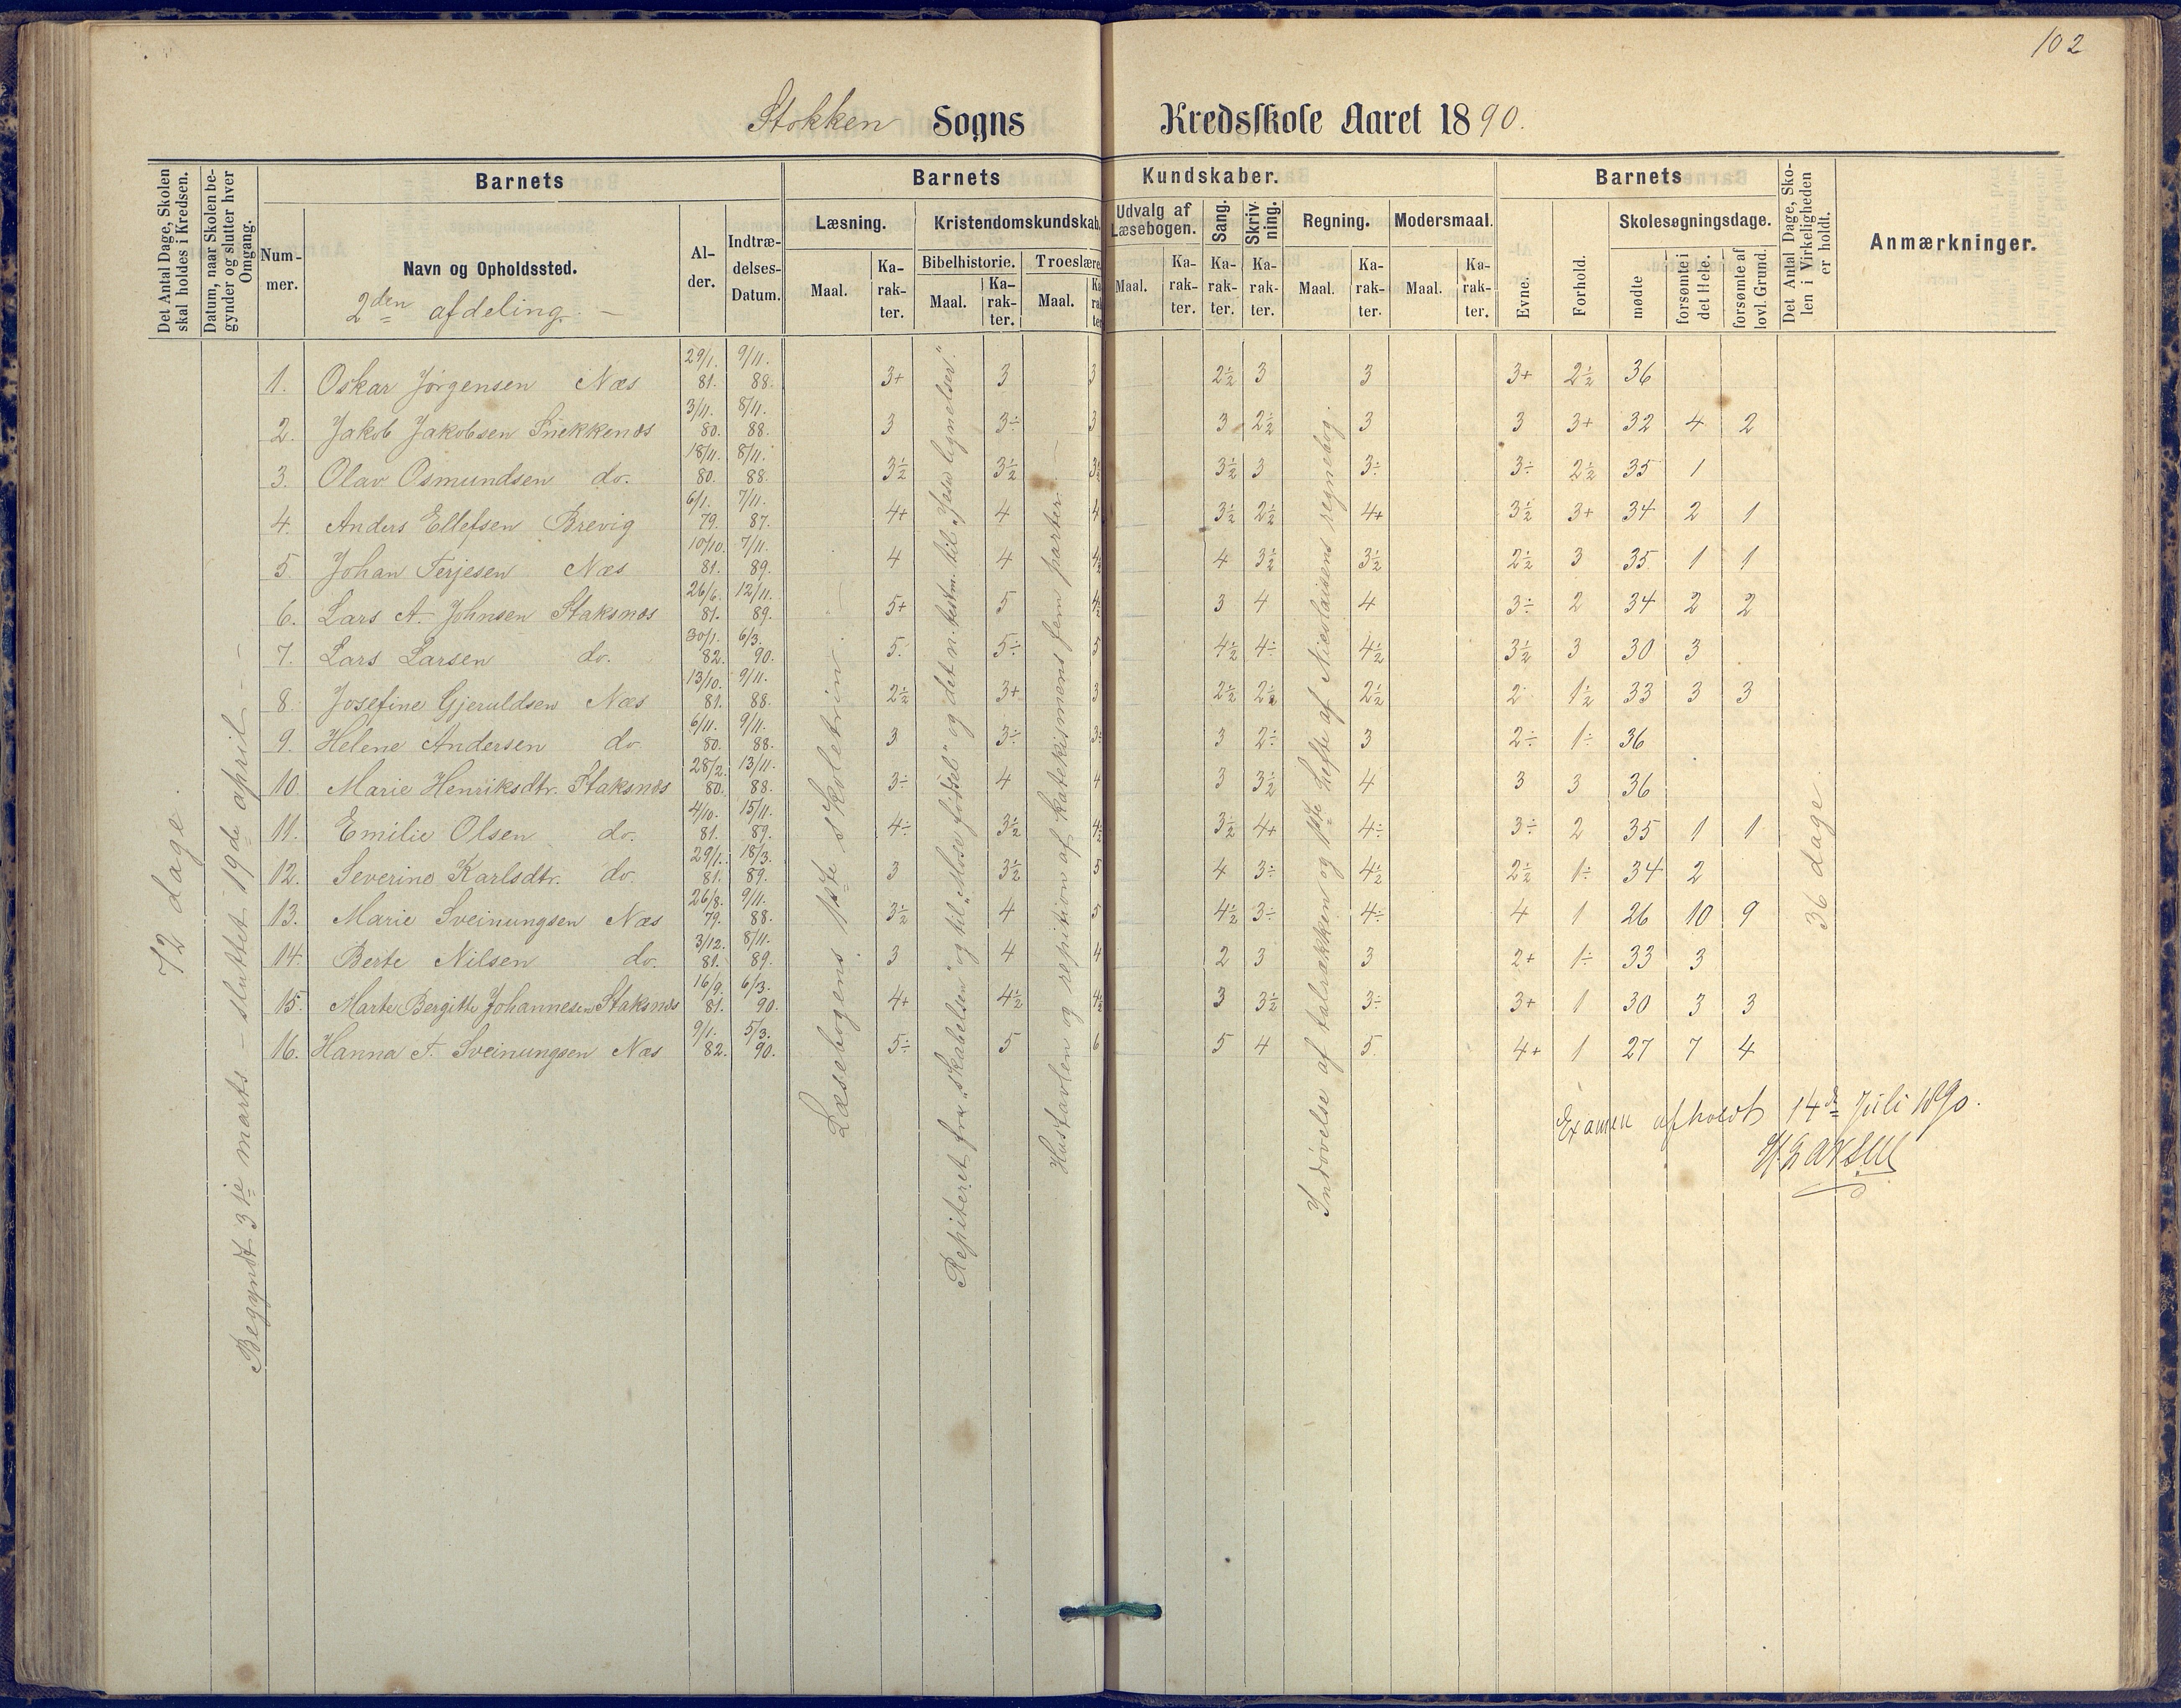 102
Stokken Sogns Kredsskole Aaret 1890.
Det Antal Dage, Skolen skal holdes i Kredsen.
Datum, naar Skolen begynder og slutter hver Omgang.
Barnets
Nummer.
Navn og Opholdssted.
2den afdeling. —
Alder.
Indtrædelses-Datum.
Barnets Kundskaber.
Læsning.
Maal.
Karakter.
Kristendomskundskab.
Bibelhistorie.
Maal.
Karakter.
Troeslære
Maal.
Karakter
Udvalg af Læsebogen.
Maal.
Karakter.
Sang.
Karakter.
Skrivning.
Karakter.
Regning.
Maal.
Karakter.
Modersmaal.
Maal.
Karakter.
Barnets
Evne.
Forhold.
Skolesøgningsdage.
mødte
forsømte i det Hele.
forsømte af lovl. Grund.
Det Antal Dage, Skolen i Virkeligheden er holdt.
Anmærkninger.
72 dage.
Begyndt 3die marts — sluttet 19de april —
Læsebogens 1ste skoletrin. —
Repiteret fra „skabelsen" og til „Mose fødsel" og det n. testm. til „Jesu lignelser".
Hustavlen og repitition af katekismens fem parter. —
Indøvelse af talrækken og 1ste hefte af Nicolaisens regnebog.
36 dage.
1. Oskar Jørgensen Næs 29/1. 81. 9/11. 88. 3+ 3 3 2½ 3 3 3+ 2½ 36
2. Jakob Jakobsen Snekkenæs 3/11. 80. 8/11. 88. 3 3÷ 3 3 2½ 3 3 3+ 32 4 2
3. Olav Osmundsen do. 18/11. 80. 8/11. 88. 3½ 3½ 3½ 3½ 3 3÷ 3÷ 2½ 35 1
4. Anders Ellefsen Brevig 6/1. 79. 7/11. 87. 4+ 4 4 3½ 2½ 4+ 3½ 3+ 34 2 1
5. Johan Terjesen Næs 10/10. 81. 7/11. 89. 4 4 4½ 4 3½ 3½ 2½ 3 35 1 1
6. Lars A. Johnsen Staksnæs 26/6. 81. 12/11. 89. 5+ 5 4½ 3 4 4 3÷ 2 34 2 2
7. Lars Larsen do. 30/1. 82. 6/3. 90. 5. 5÷ 5 4½ 4÷ 4½ 3½ 3 30 3
8. Josefine Gjeruldsen Næs 13/10. 81. 9/11. 88. 2½ 3+ 3 2½ 2½ 2½ 2 1½ 33 3 3
9. Helene Andersen do. 6/11. 80. 9/11. 88. 3 3÷ 3÷ 3 2÷ 3 2÷ 1÷ 36
10. Marie Henriksdtr. Staksnæs 28/2. 80. 13/11. 88. 3÷ 4 4 3 3½ 4 3 3 36
11. Emilie Olsen do. 4/10. 81. 15/11. 89. 4÷ 3½ 4½ 3½ 4+ 4÷ 3÷ 2 35 1 1
12. Severine Karlsdtr. do. 29/1. 81. 18/3. 89. 3 3½ 5 4 3÷ 4½ 2½ 1÷ 34 2
13. Marie Sveinungsen Næs 26/8. 79. 9/11. 88. 3½ 4 5 4½ 3÷ 4÷ 4 1 26 10 9
14. Berte Nilsen do. 3/12. 81. 8/11. 89. 3 4 4 2 3 3 2+ 1÷ 33 3
15. Marte Bergitte Johannesen Staksnæs 16/9. 81. 6/3. 90. 4+ 4½ 4½ 3 3½ 3÷ 3+ 1 30 3 3
16. Hanna T. Sveinungsen Næs 9/1. 82. 5/3. 90. 5÷ 5 6 5 4 5 4+ 1 27 7 4
Examen afholdt 14de Juli 1890.